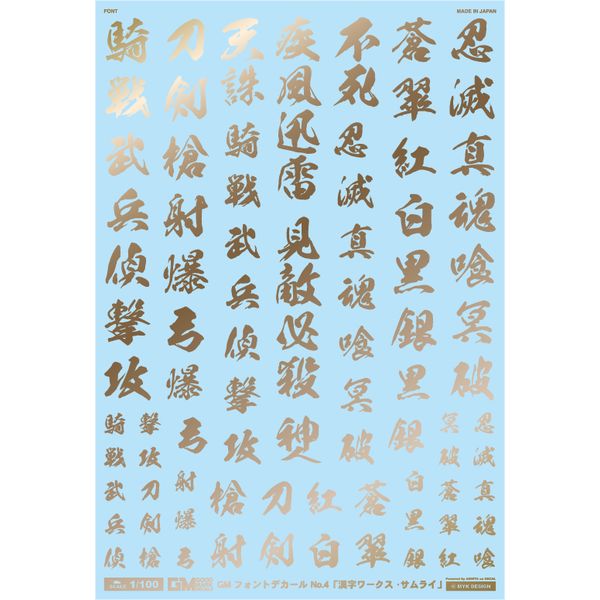 FONT
MADE IN JAPAN
忍滅真魂喰冥破
蒼翠紅白黒銀黒銀
不死忍滅真魂喰冥破
疾風迅雷見敵必殺神
天誅騎戦武兵偵撃攻
刀剣槍射爆弓爆弓
騎戦武兵偵撃攻
忍滅真魂喰
冥破蒼翠紅
白黒銀
蒼翠
紅白
刀剣
槍射
射爆弓
撃攻刀剣槍
騎戦武兵偵
SCALE 1/100
GM フォントデカール No.4「漢字ワークス・サムライ」
MYK DESIGN